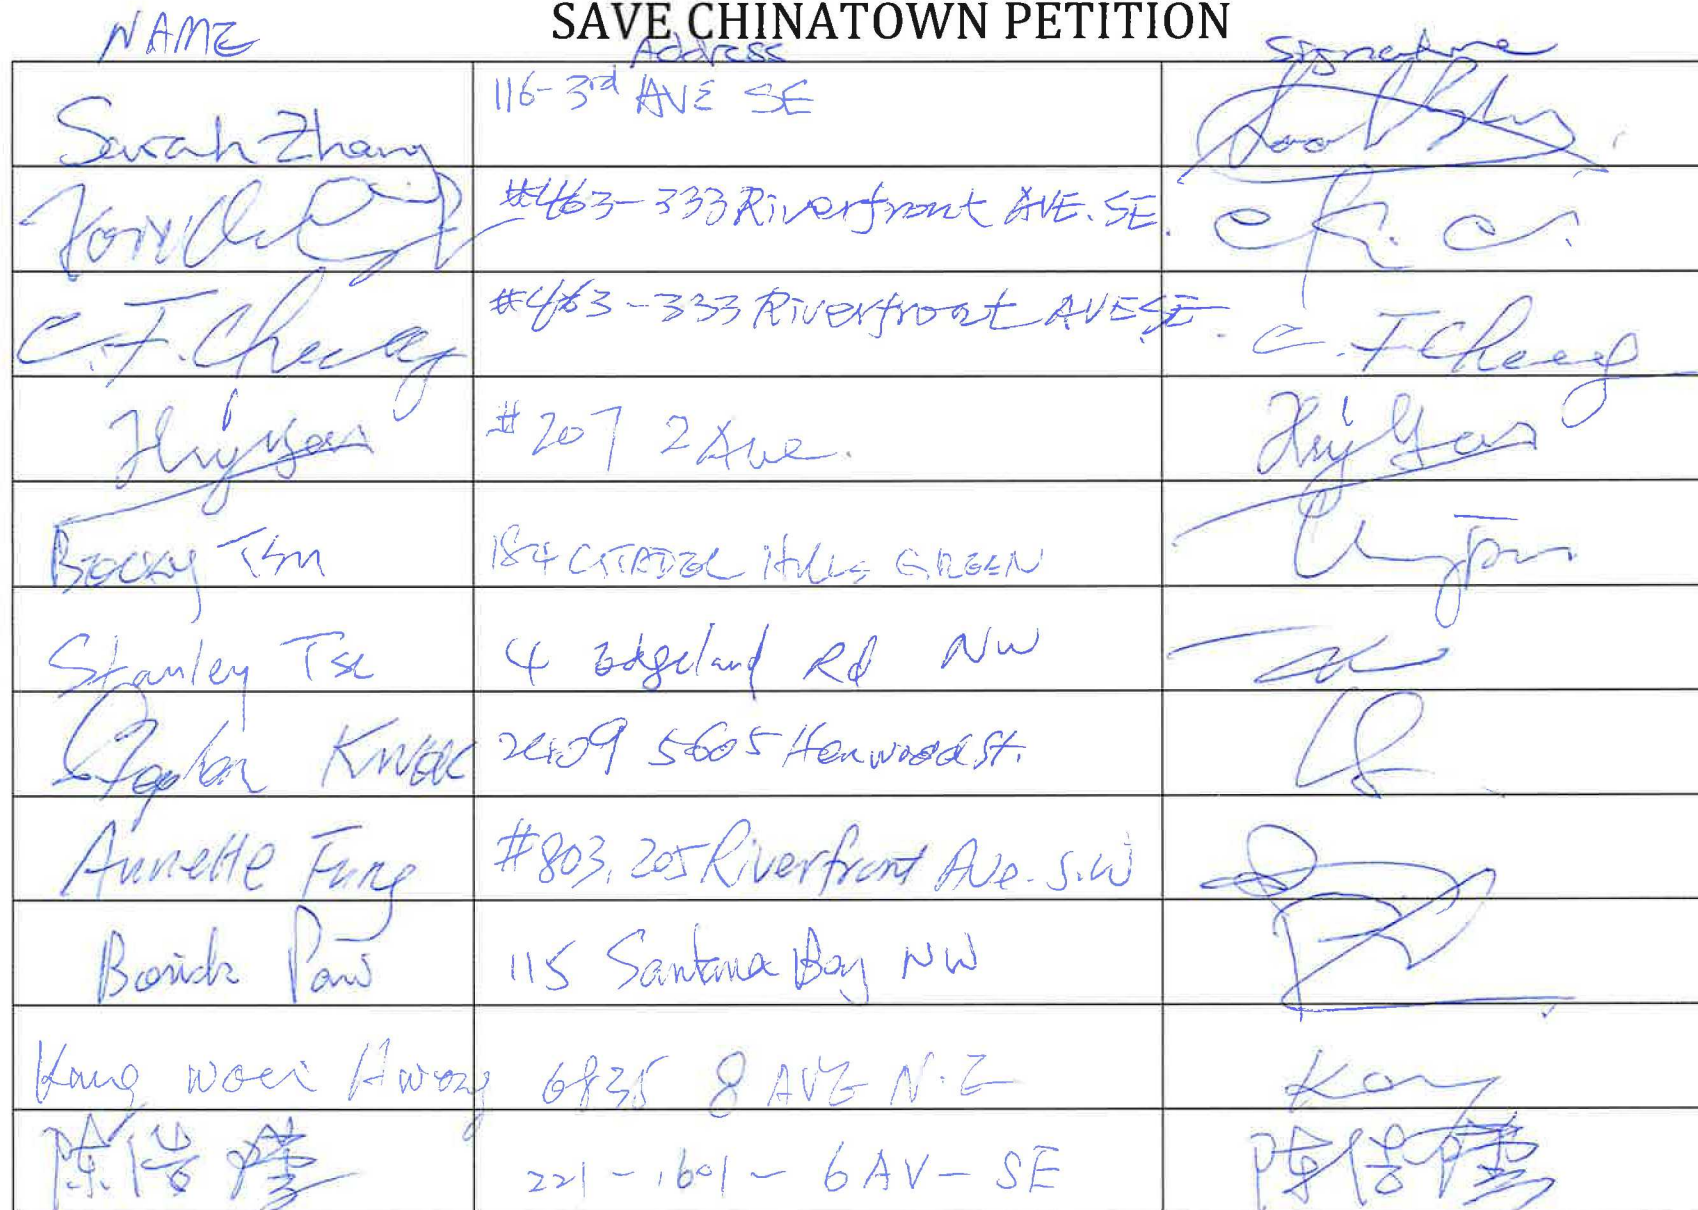 SAVE CHINATOWN PETITION
NAME Address Signature
Sarah Zhang 116-3rd AVE SE
#463-333 Riverfront AVE. SE.
C.F. Cheung #463-333 Riverfront AVE SE. C.F Cheung
#207 2 Ave.
Becky Tsui 184 CITADEL HILLS GREEN
Stanley Tse 4 Edgeland Rd NW
Stephen Kwok 2409 5605 Henwood St.
Annette Fung #803, 205 Riverfront Ave. S.W
Pow 115 Santana Bay NW
Kong Woei Hwong 6835 8 AVE N.E Kong
陳 221-1601-6AV-SE 陳